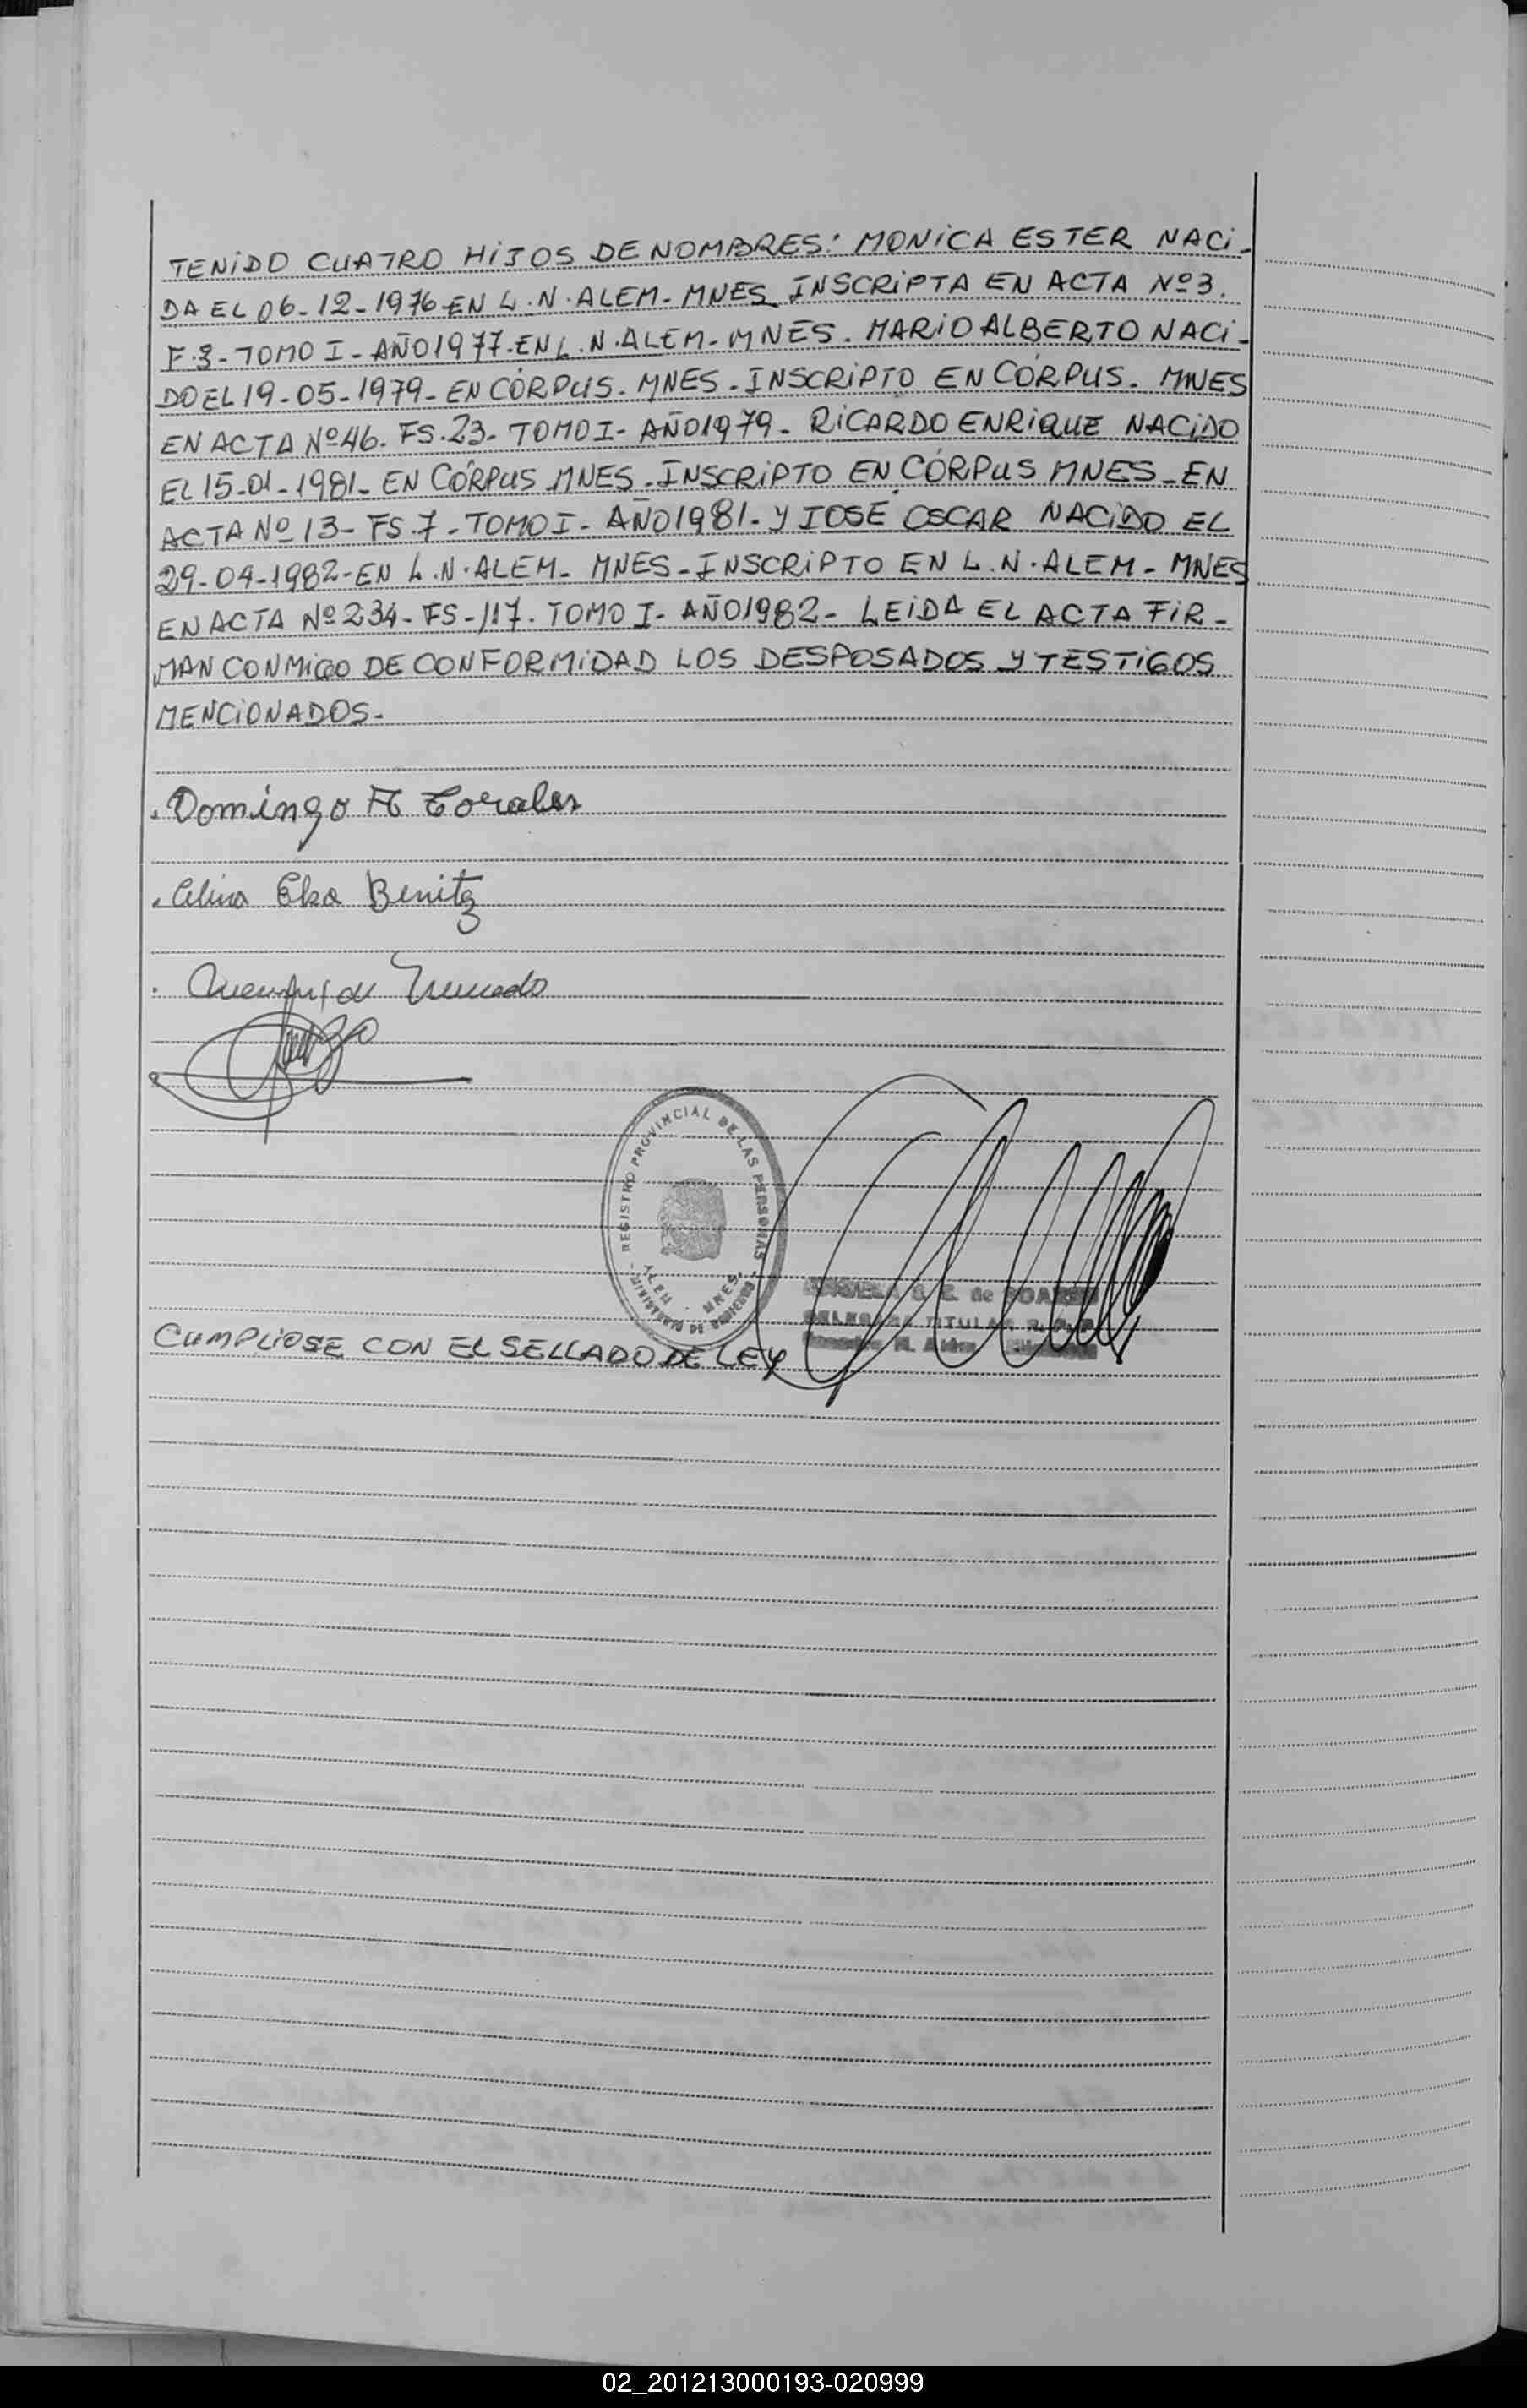 TENIDO CUATRO HIJOS DE NOMBRES: MONICA ESTER NACI-
DA EL 06-12-1976 EN L.N.ALEM- MNES INSCRIPTA EN ACTA Nº3.
F.3- TOMO I- AÑO 1977- EN L.N.ALEM- MNES. MARIO ALBERTO NACI-
DO EL 19-05-1979- EN CÓRPUS- MNES- INSCRIPTO EN CÓRPUS. MNES
EN ACTA Nº46. FS.23- TOMO I- AÑO 1979- RICARDO ENRIQUE NACIDO
EL 15-01-1981- EN CÓRPUS MNES- INSCRIPTO EN CÓRPUS MNES- EN
ACTA Nº 13- FS.7- TOMO I- AÑO 1981- Y JOSÉ OSCAR NACIDO EL
29-04-1982- EN L.N.ALEM- MNES- INSCRIPTO EN L.N.ALEM- MNES
EN ACTA Nº 234- FS-117. TOMO I- AÑO 1982- LEIDA EL ACTA FIR-
MAN CONMIGO DE CONFORMIDAD LOS DESPOSADOS Y TESTIGOS
MENCIONADOS-
Domingo A Torales
Celina Elsa Benitez
REGISTRO PROVINCIAL DE LAS PERSONAS
ALEM - MNES.
MINISTERIO DE GOBIERNO
de SOAREZ
TITULAR
CUMPLIOSE CON EL SELLADO DE LEY
02_201213000193-020999